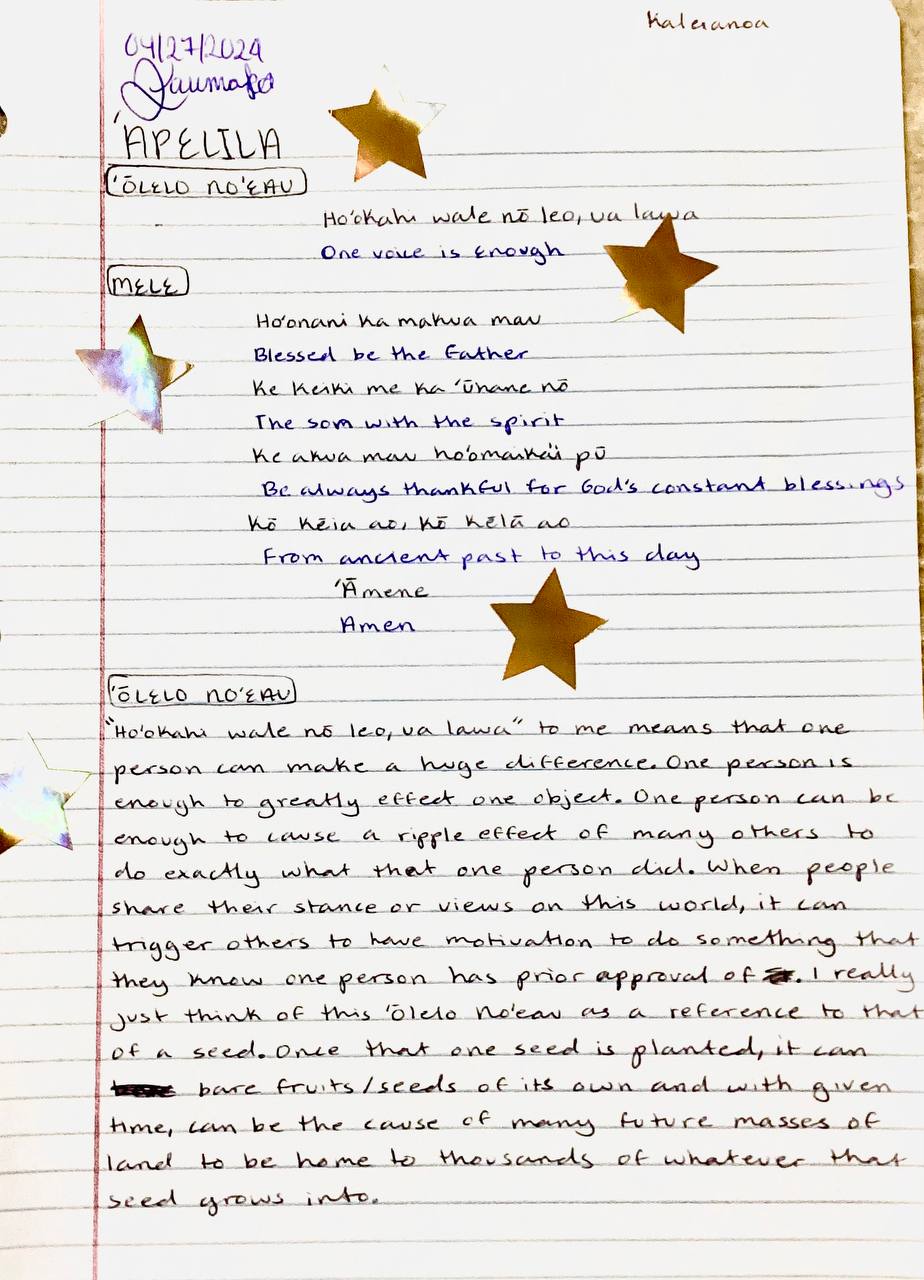 Kaleianoa
04/27/2024
Kaumaka
'APELILA
'ŌLELO NO'EAU
Ho'okahi wale nō leo, ua lawa
One voice is Enough
MELE
Ho'onani ka makua mau
Blessed be the Father
Ke Keiki me ka 'Ūhane nō
The son with the spirit
Ke akua mau ho'omaika'i pū
Be always thankful for God's constant blessings
Kō Kēia ao, Kō Kēlā ao
From ancient past to this day
'Āmene
Amen
'ŌLELO NO'EAU
"Ho'okahi wale nō leo, ua lawa" to me means that one
person can make a huge difference. One person is
enough to greatly effect one object. One person can be
enough to cause a ripple effect of many others to
do exactly what that one person did. When people
share their stance or views on this world, it can
trigger others to have motivation to do something that
they know one person has prior approval of. I really
just think of this 'Ōlelo No'eau as a reference to that
of a seed. Once that one seed is planted, it can
bare fruits/seeds of its own and with given
time, can be the cause of many future masses of
land to be home to thousands of whatever that
seed grows into.